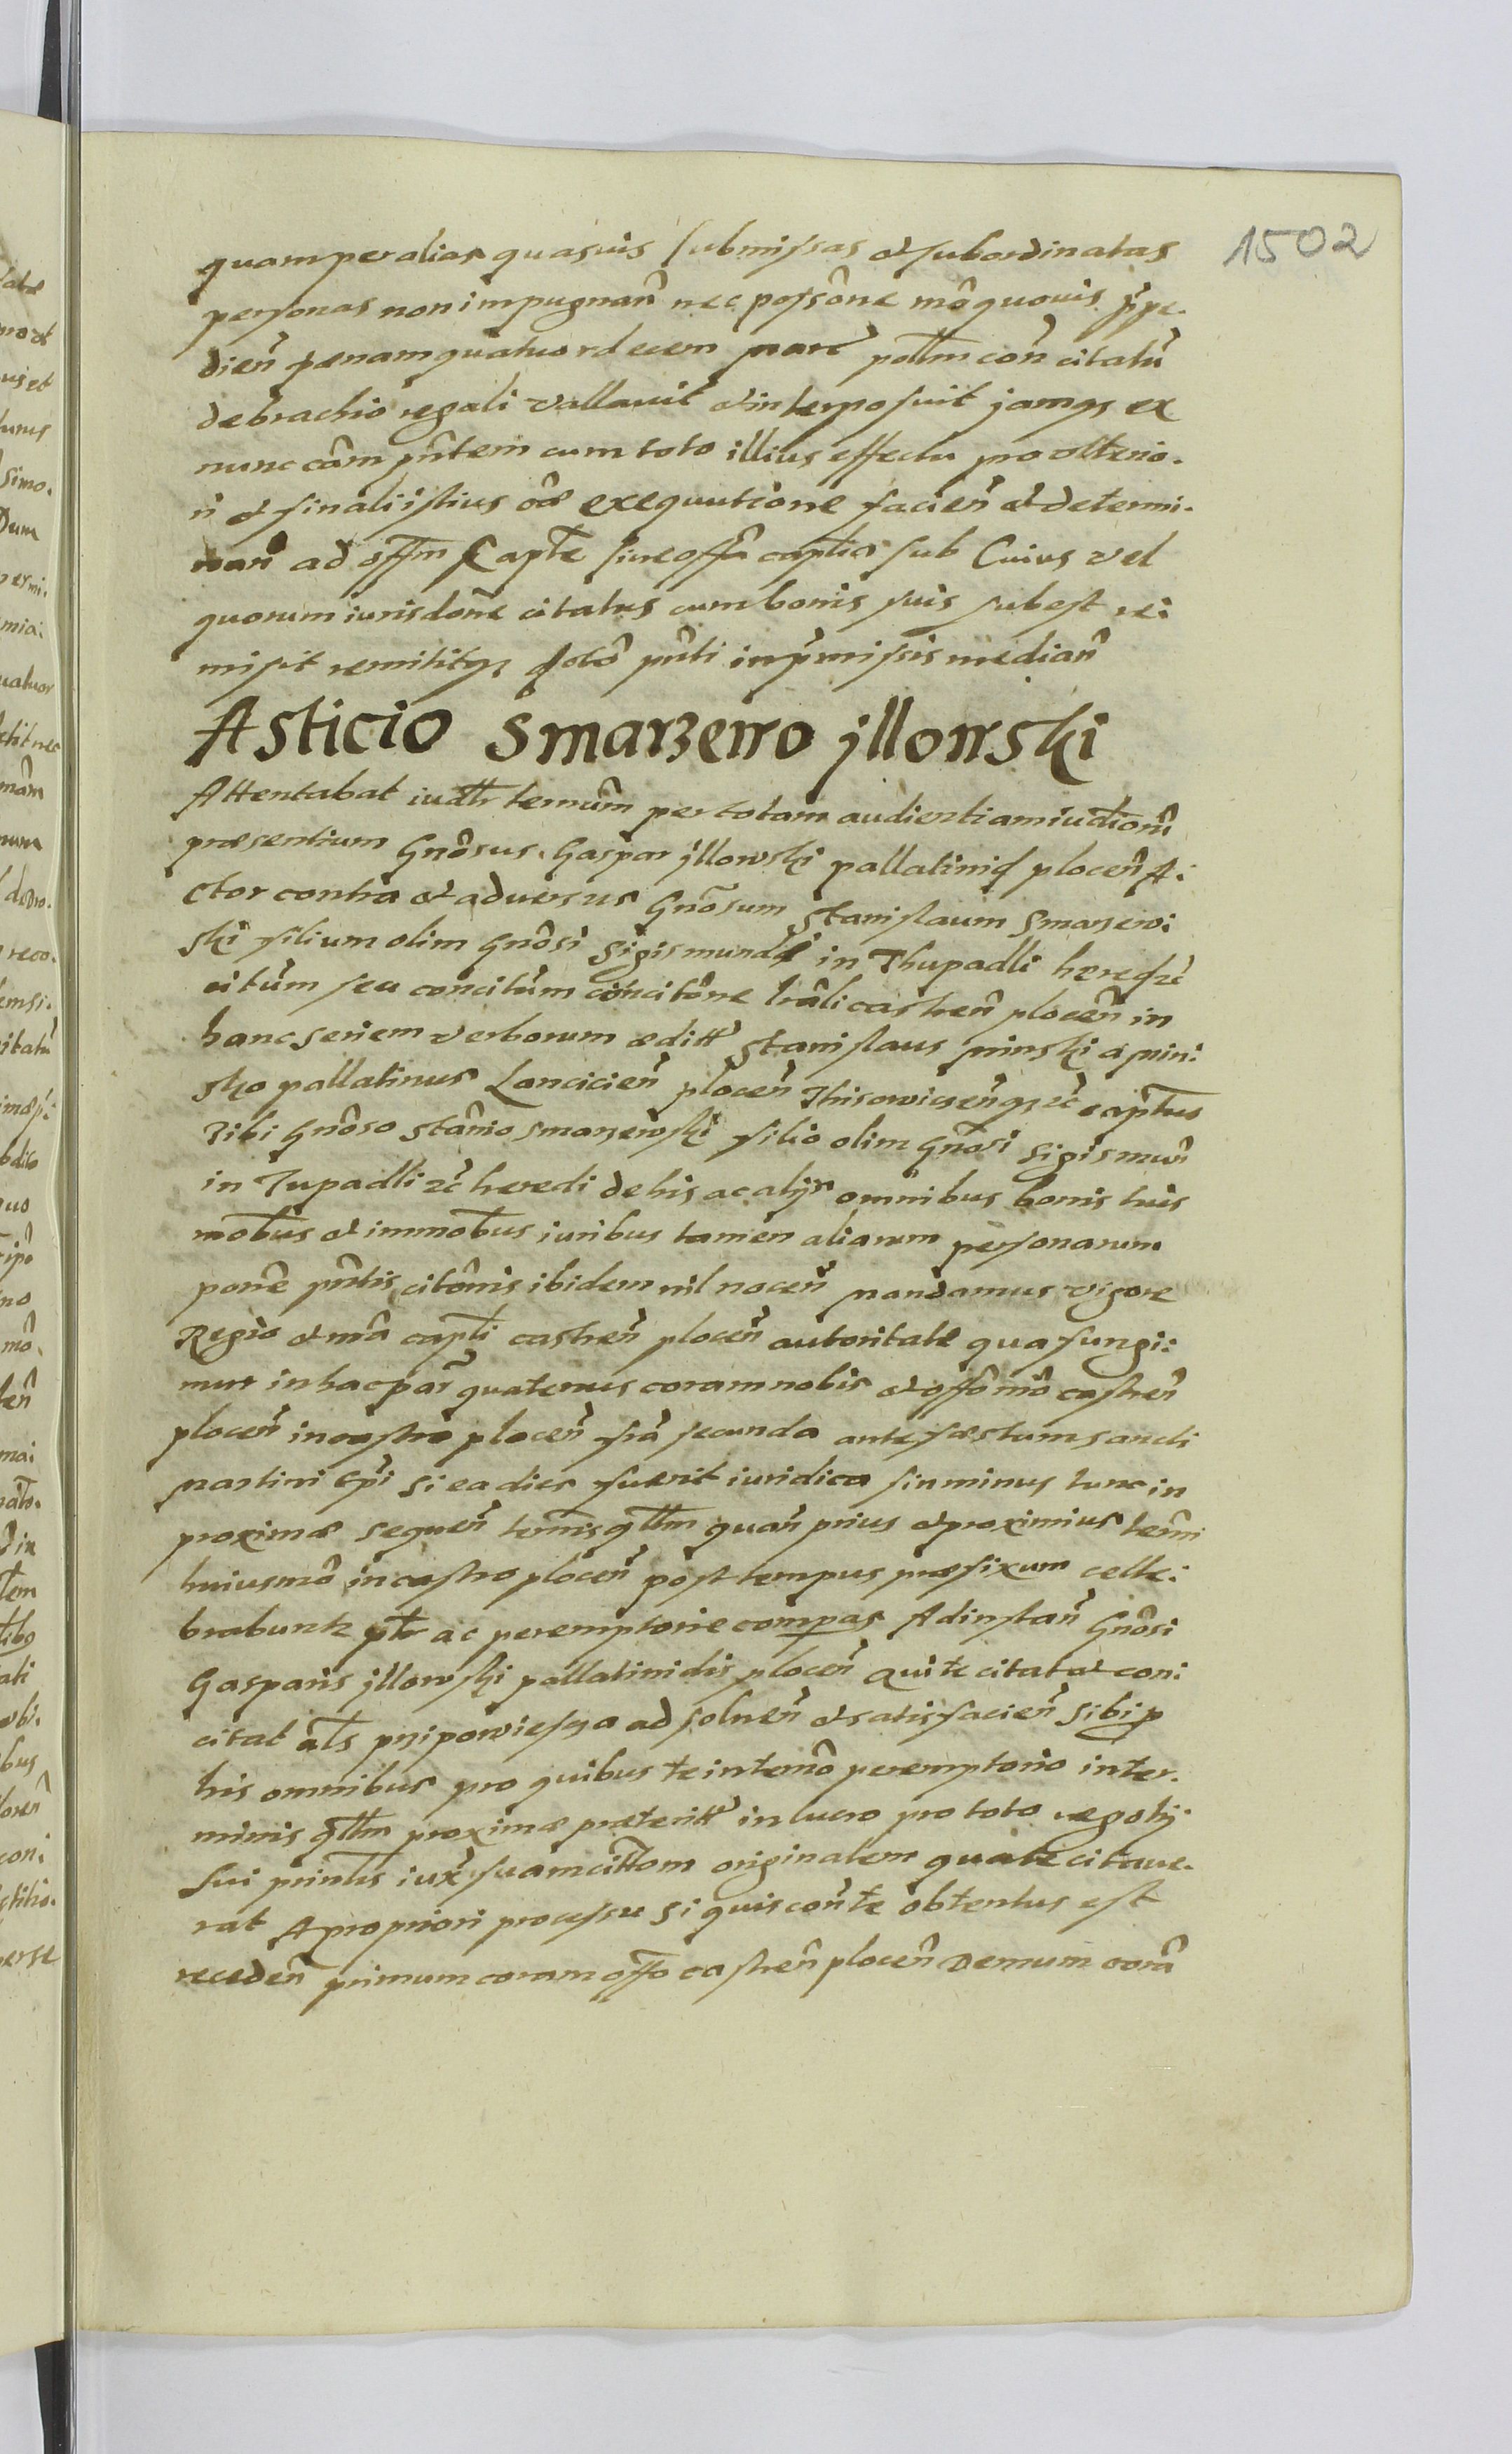 1502
quam per alias quasuis submissas et subordinatas
personas non impugnan̄ nec possōne mō quouis p̄pe-
dien̄ pænam quatuordecem marc̄ pol̄lm con̄ citatū
de brachio regali vallauit et interposuit jamq3 ex
nunc cām pn̄tem cum toto illius effectu pro vlterio-
ri et finali istius oīē exequutione facien̄ et determi-
nan̄ ad off̄m Capte siue off̄a captlia sub Cuius vel
quorum iurisdōne citatus cum bonis suis subest re:
misit remititq3 Actō pn̄ti in p̄missis median̄
Asticio Smarzewo jllowski
Attentabat iudłr termūm per totam audientiam iuditiorū
præsentium Gnōsus Gaspar jllowski pallatinid plocen̄ A:
ctor contra et aduersus Gnōsum Stanislaum Smarzew:
ski filium olim Gnōsi Sigismundi in Thupadli heredē 2c̄
citūm seu concitūm concitōne lrāli castren̄ plocen̄ in
hanc seriem verborum æditt̄ Stanislaus minski a min:
sko pallatinus Lancicien̄ plocen̄ Thisowicien̄q3 2c̄ capt̄us
Tibi Gnōso Stānio Smarzewski filio olim Gnōsi Sigismun̄
in Tupadli 2c̄ heredi de his ac alijs omnibus bonis tuis
mobūs et immobūs iuribus tamen aliarum personarum
ponē pn̄tis citōnis ibidem nil nocen̄ mandamus vigore
Regio et nrā capt̄i castren̄ plocen̄ autoritate qua fungi:
mur in hac par̄ quatenus coram nobis et offō nrō castren̄
plocen̄ in castro plocen̄ fr̄ā secunda ante fæstum sancti
martini Ep̄i si ea dies fuerit iuridica sin minus tunc in
proximæ sequen̄ termīs q̄łlm quan̄ prius et proximius termī
huiusmō in castro plocen̄ post tempus præfixum celle:
brabunt2 pt̄r ac peremptorie compas Ad instan̄ Gnōsi
Gasparis jllowski pallatinidis plocen̄ qui te citat et con:
citat al̄s przipowiesza ad soluen̄ et satisfacien̄ sibi p
his omnibus pro quibus te in termō peremptorio inter-
minis q̄łlm proximæ præteritt̄ in lucro pro toto negotij
sui prin̄lis iux̄ suam cittōm originalem qua te citaue-
rat A pro priori processu si quis con̄ te obtentus est
receden̄ primum coram offō castren̄ plocen̄ Demum corā